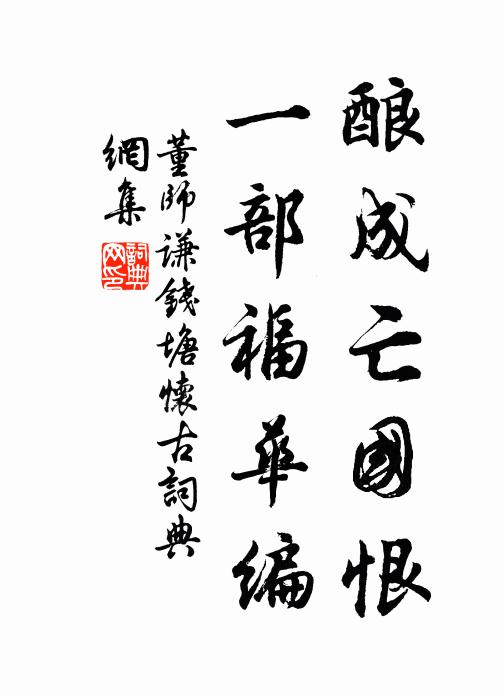 酿成亡國恨
一部福華编
董師谦錢塘懷古詞典
網集
詞典
网印